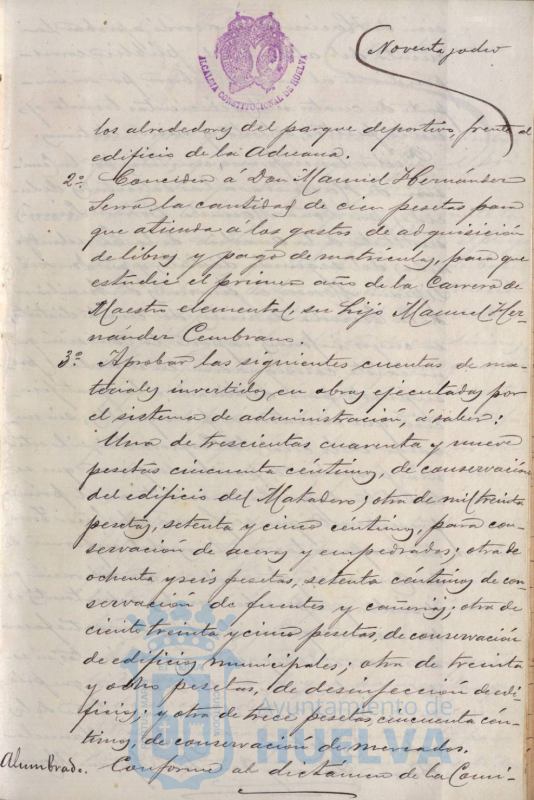 Noventa y ocho
ALCALDIA CONSTITUCIONAL DE HUELVA
los alrededores del parque deportivo, frente al
edificio de la Aduana.
2º. Conceder á Don Manuel Hernández
Serra la cantidad de cien pesetas para
que atienda á los gastos de adquisición
de libros y pago de matrículas, para que
estudie el primer año de la Carrera de
Maestro elemental, su hijo Manuel Her-
nández Cembrano.
3º. Aprobar las siguientes cuentas de ma-
teriales invertidos en obras ejecutadas por
el sistema de administración, á saber:
Una de trescientas cuarenta y nueve
pesetas cincuenta céntimos, de conservación
del edificio del Matadero; otra de mil treinta
pesetas, setenta y cinco céntimos, para con-
servación de aceras y empedrados; otra de
ochenta y seis pesetas, setenta céntimos de con-
servación de fuentes y cañerías; otra de
ciento treinta y cinco pesetas, de conservación
de edificios municipales; otra de treinta
y ocho pesetas, de desinfección de edi-
ficios; y otra de trece pesetas, cincuenta cén-
timos, de conservación de mercados.
Alumbrado. Conforme al dictámen de la Comi-
Ayuntamiento de
HUELVA